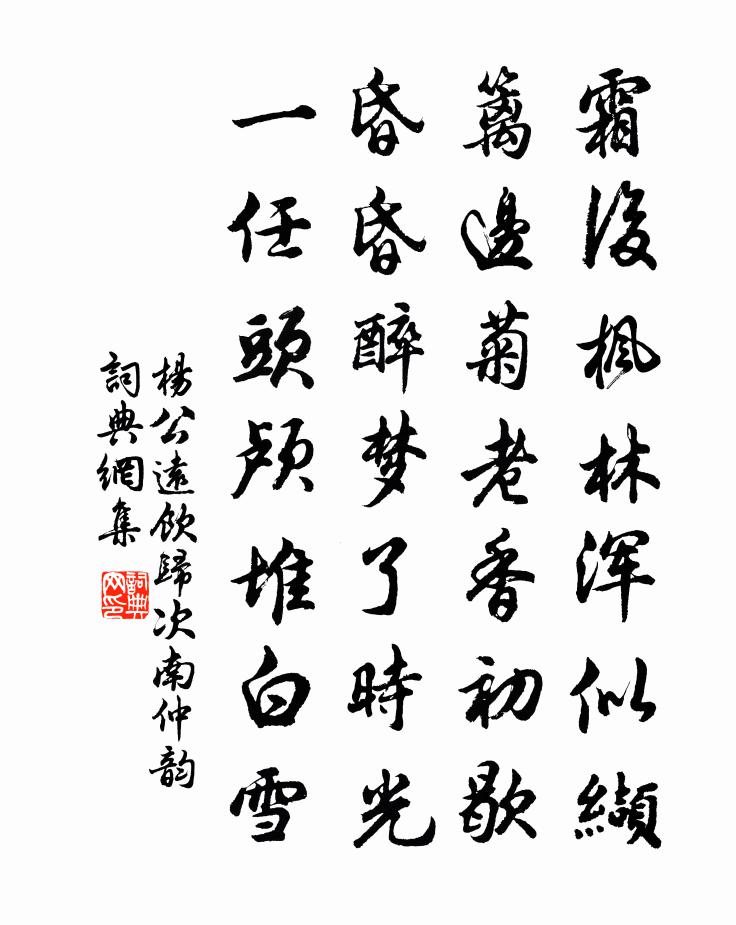 霜後楓林浑似纈
篱邊菊老香初歇
昏昏醉梦了時光
一任頭颅堆白雪
楊公遠飲歸次南仲韵
詞典網集
詞典网印